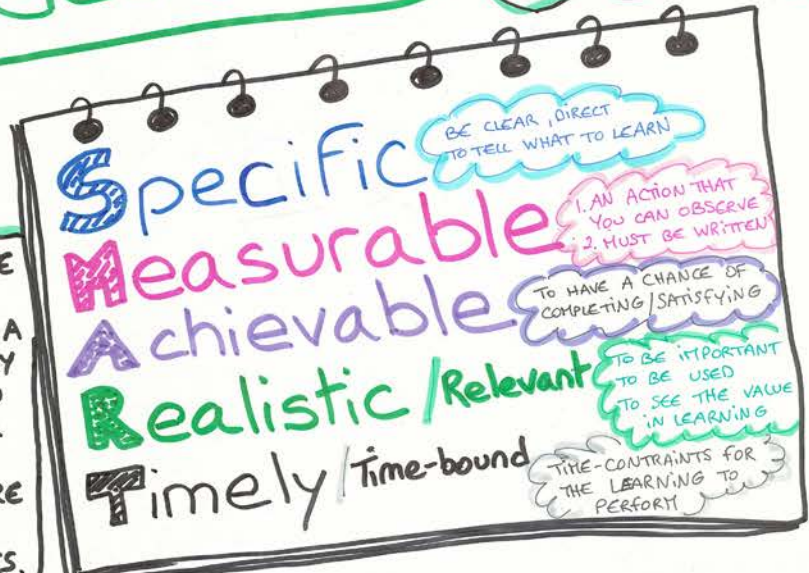 Specific
BE CLEAR, DIRECT
TO TELL WHAT TO LEARN
Measurable
1. AN ACTION THAT
YOU CAN OBSERVE
2. MUST BE WRITTEN
Achievable
TO HAVE A CHANCE OF
COMPLETING/SATISFYING
Realistic/Relevant
TO BE IMPORTANT
TO BE USED
TO SEE THE VALUE
IN LEARNING
Timely/Time-bound
TIME-CONTRAINTS FOR
THE LEARNING TO
PERFORM